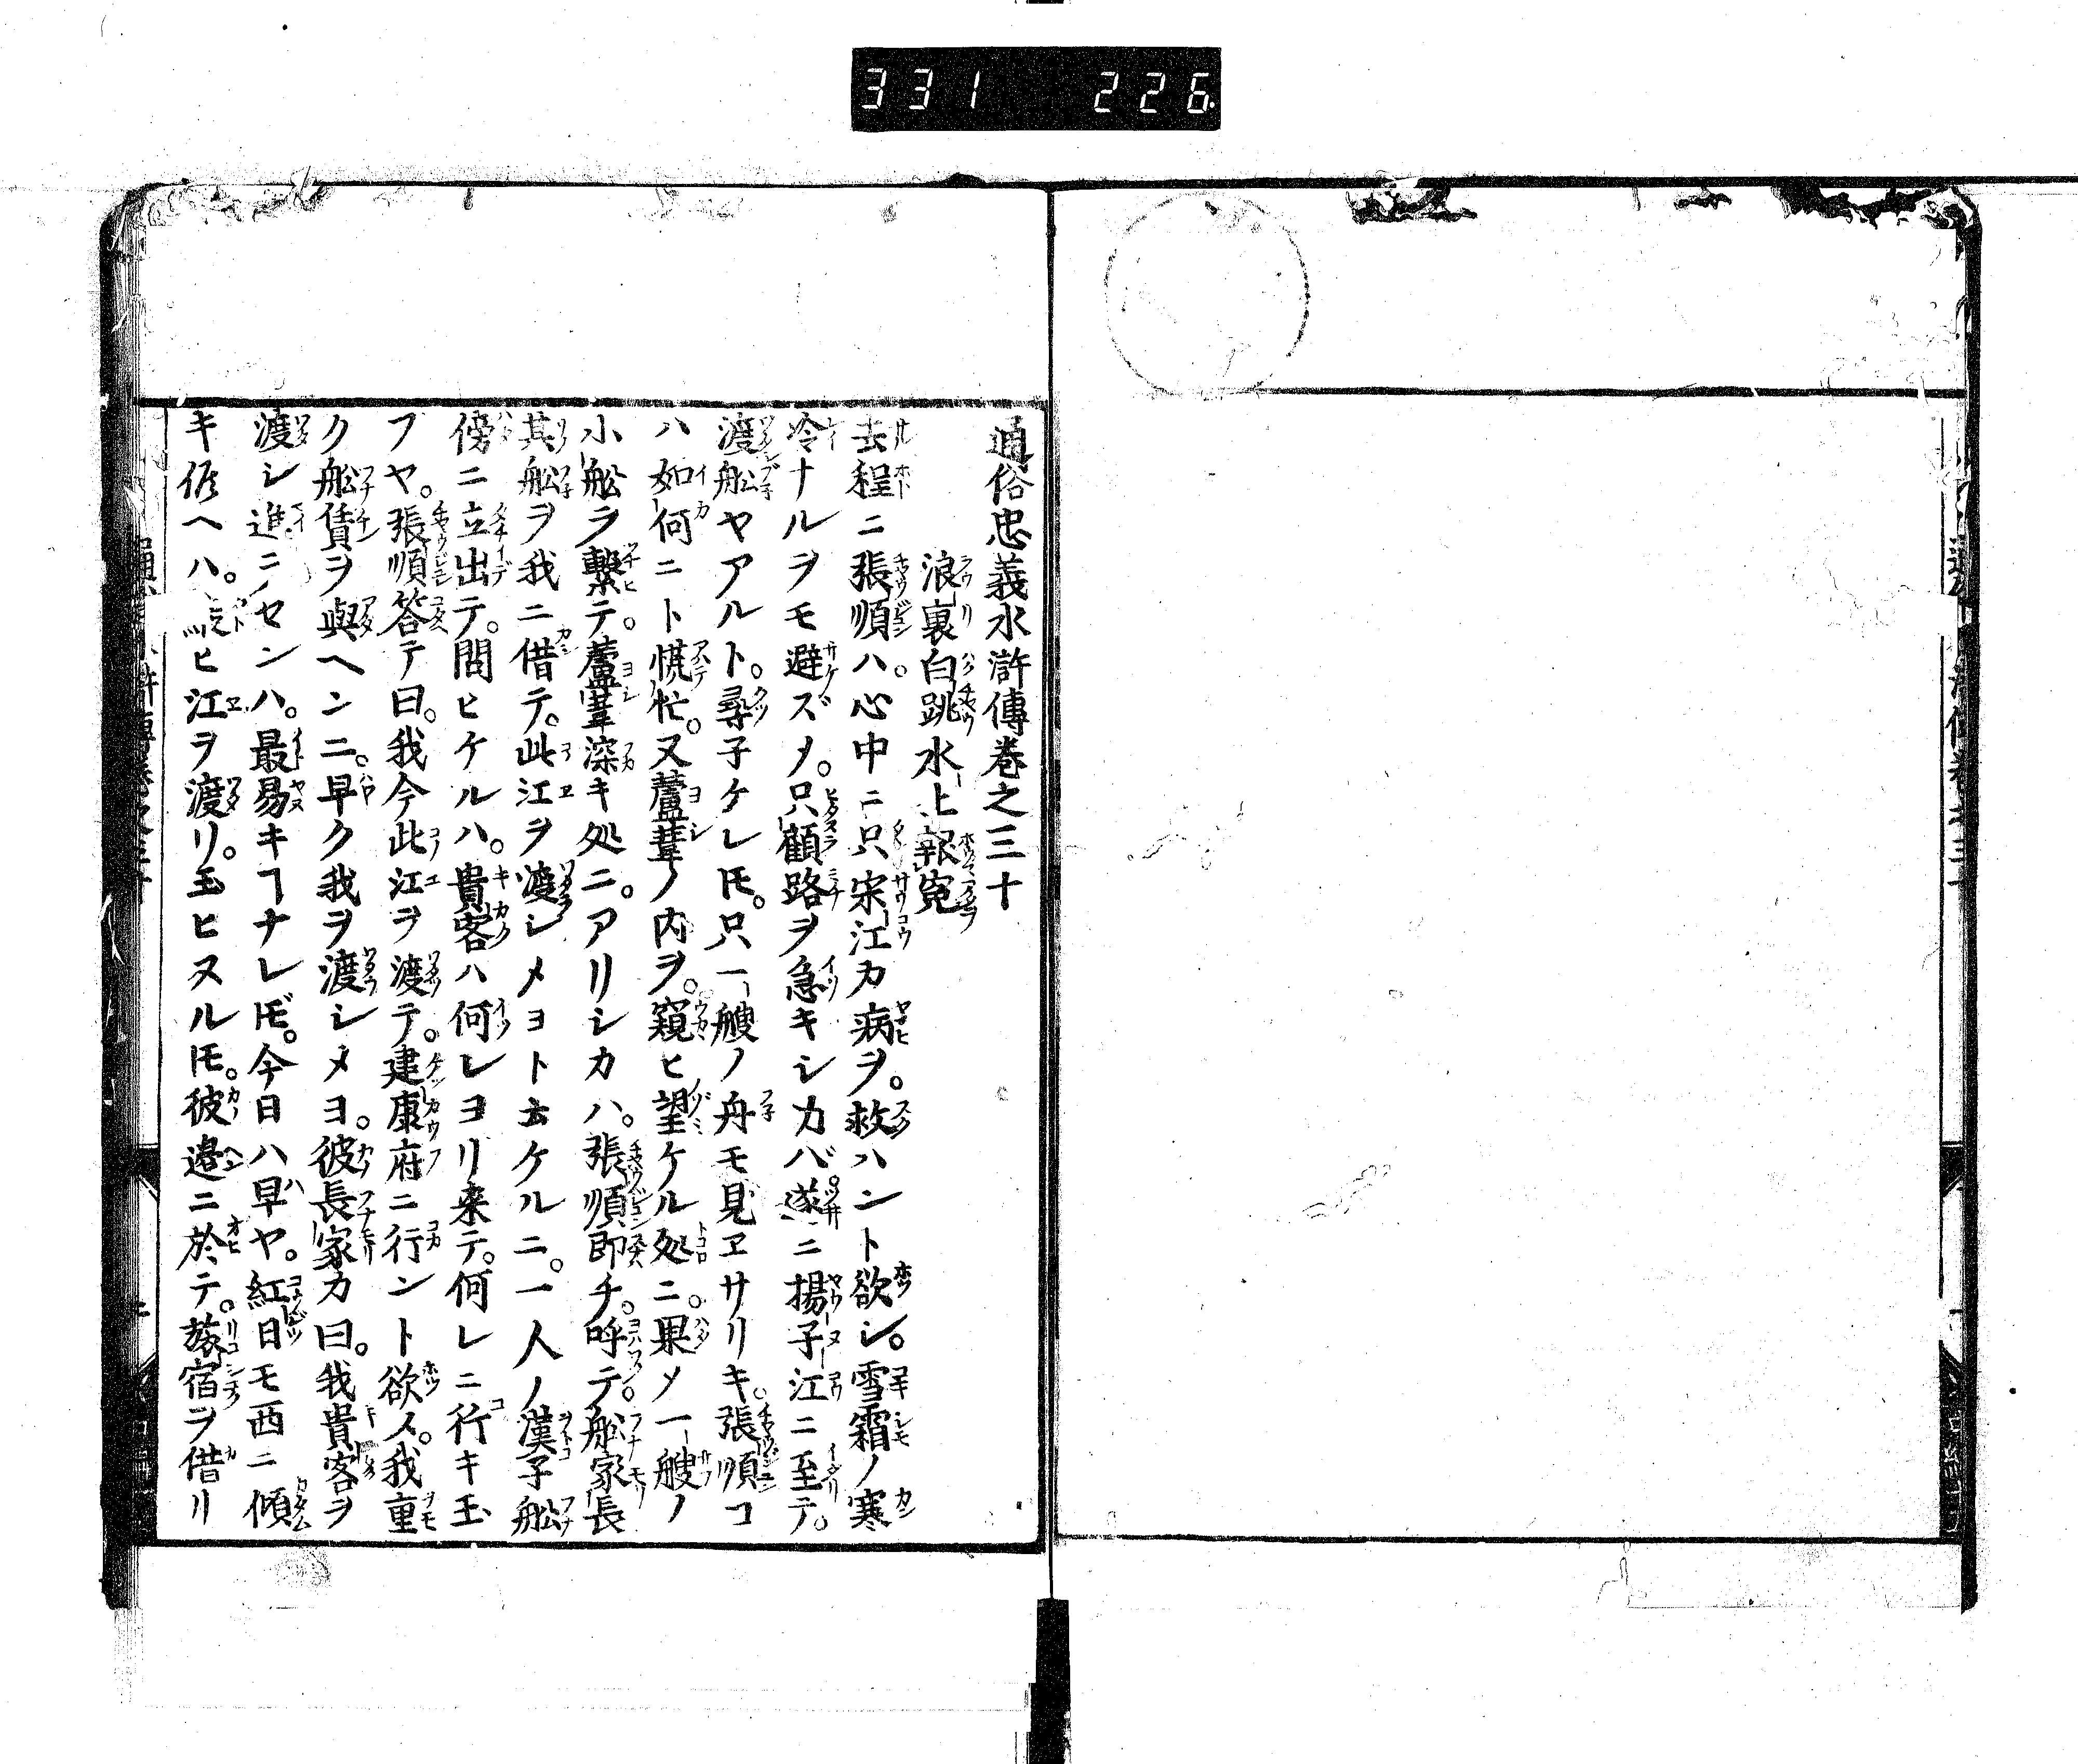 331 226
通俗忠義水滸傳卷之三十
浪裏白跳水上報寃
去程ニ張順ハ。心中ニ只宋江カ病ヲ。救ハント欲シ。雪霜ノ寒
冷ナルヲモ避ズメ。只顧路ヲ急キシカバ。遂ニ揚子江ニ至テ。
渡舩ヤアルト。尋子ケレ𪜈。只一艘ノ舟モ見ヱサリキ。張順コ
ハ如何ニト慌忙。又蘆葦ノ内ヲ。窺ヒ望ケル処ニ。果メ一艘ノ
小舩ヲ繫テ。蘆葦深キ処ニ。アリシカハ。張順即チ。呼テ。舩家長
其舩ヲ我ニ借テ。此江ヲ渡シメヨト云ケルニ。一人ノ漢子舩
傍ニ立出テ。問ヒケルハ。貴客ハ何レヨリ来テ。何レニ行キ玉
フヤ。張順答テ曰。我今此江ヲ渡テ。建康府ニ行ント欲ス。我重
ク舩賃ヲ與ヘンニ。早ク我ヲ渡シメヨ。彼長家カ曰。我貴客ヲ
渡シ進ニセンハ。最易キヿナレ𪜈。今日ハ早ヤ。紅日モ西ニ傾
キ侭ヘハ。ヒ江ヲ渡リ。玉ヒヌル𪜈。彼邉ニ於テ。旅宿ヲ借リ